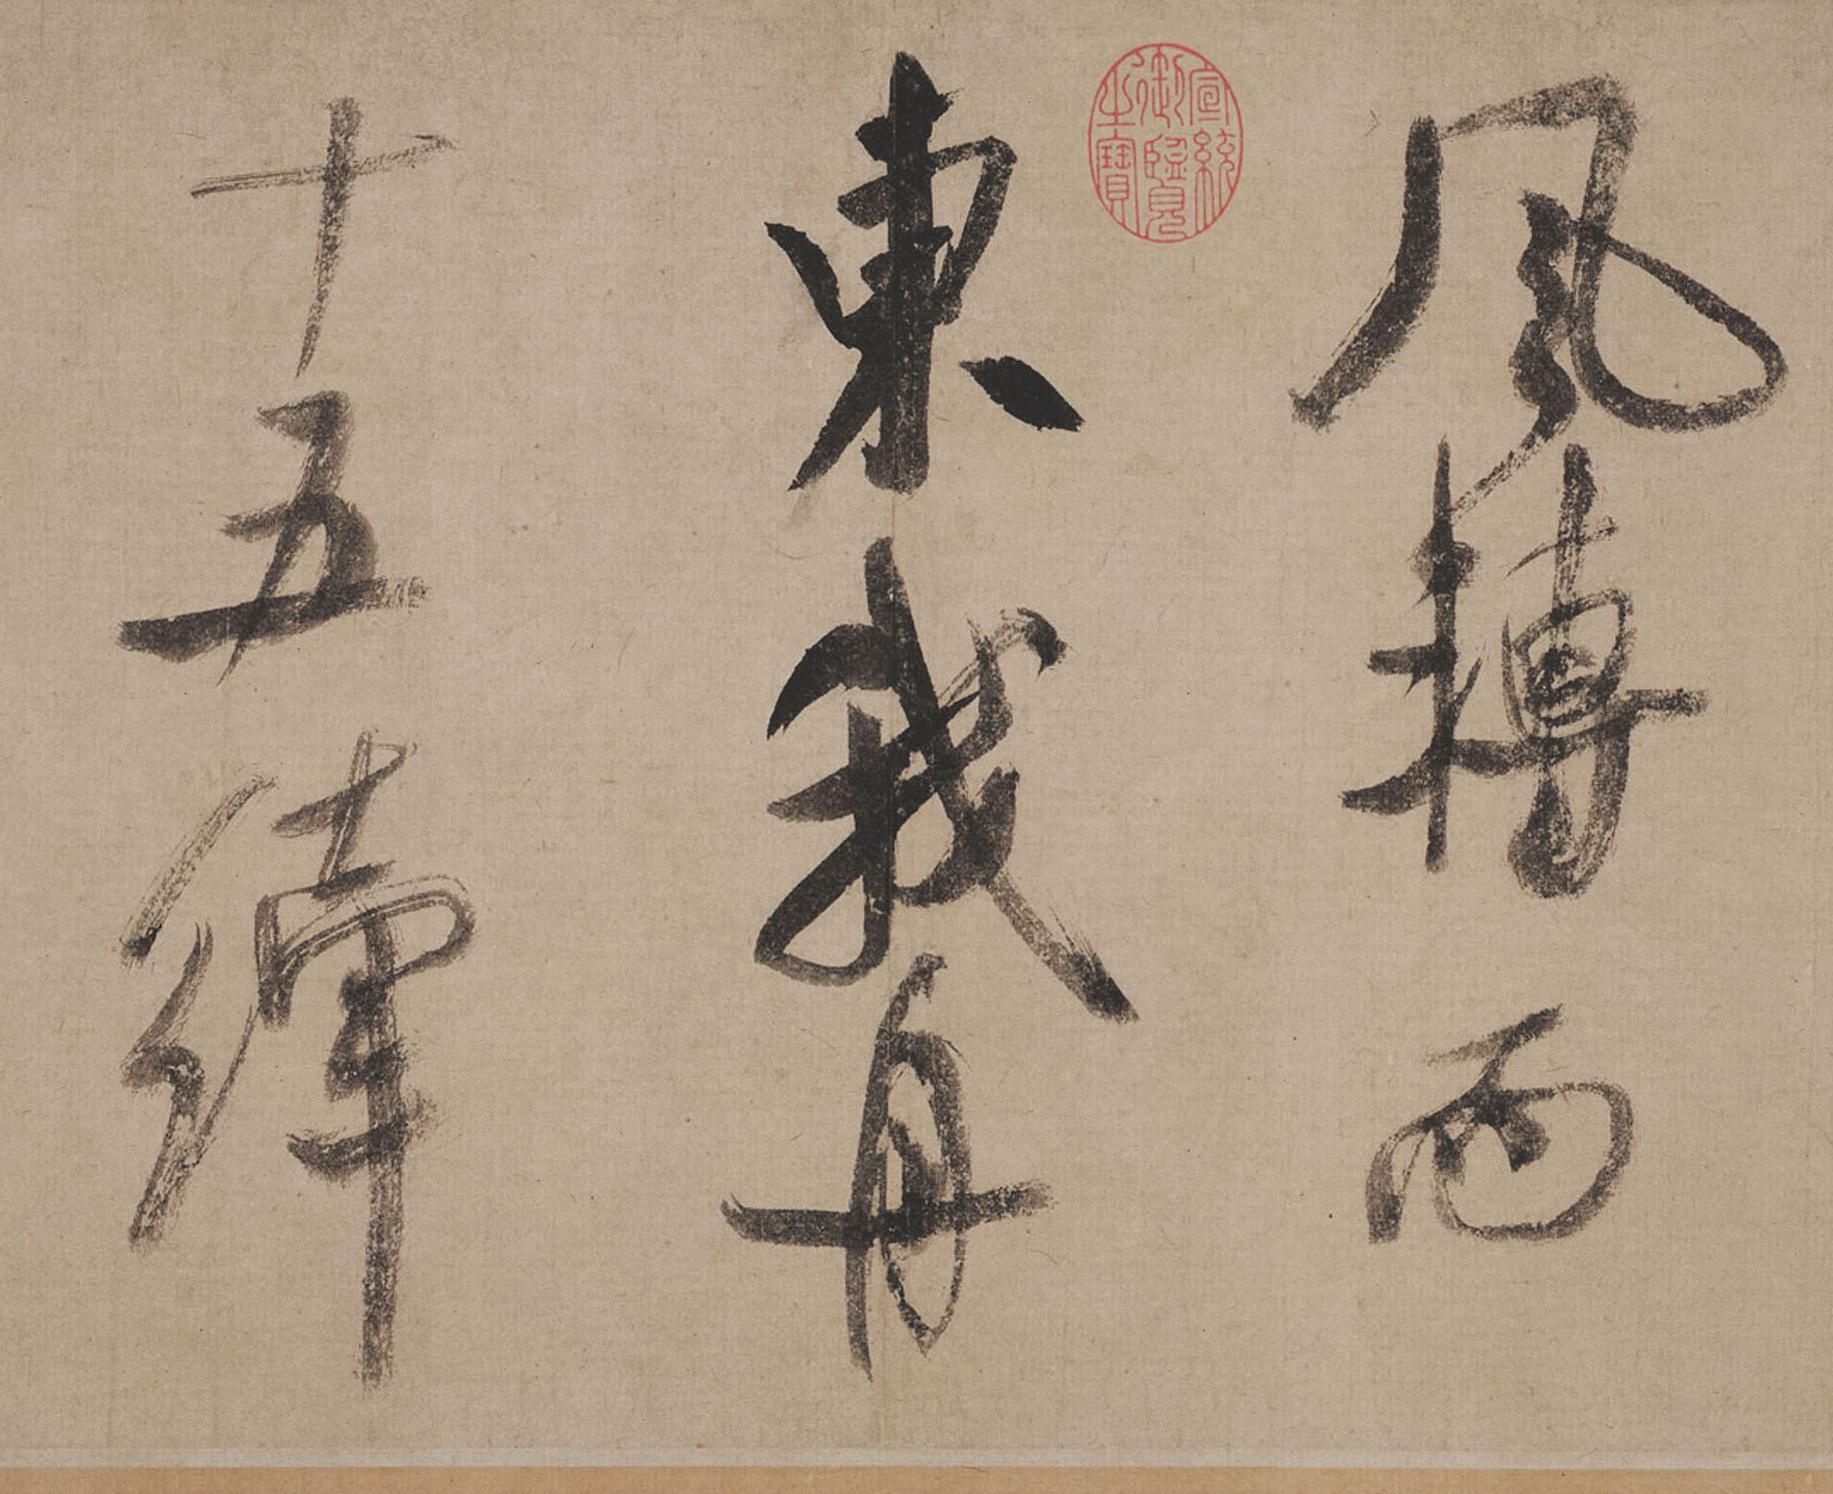 風轉而
宣統
御覽
之寶
東我舟
十五縴